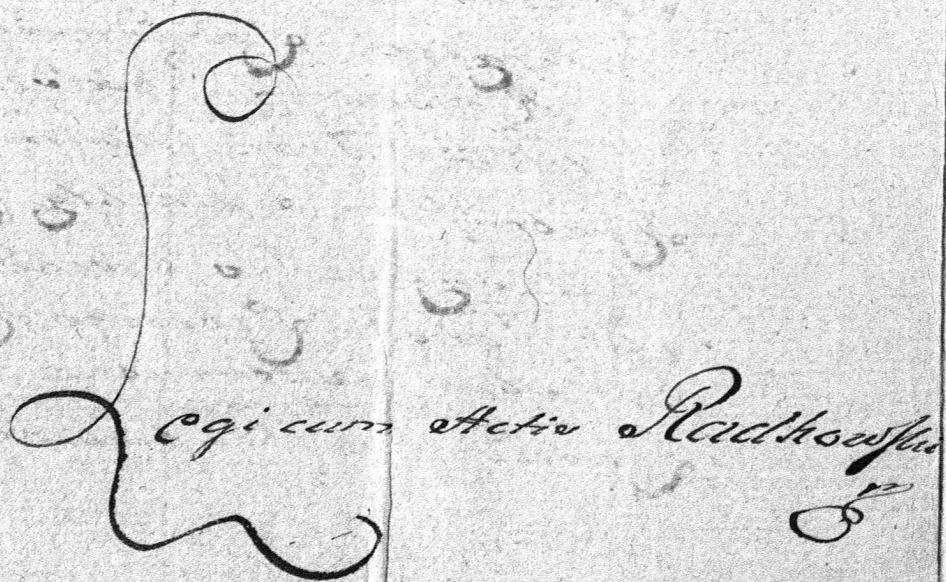 Legi cum Actis Radkowski